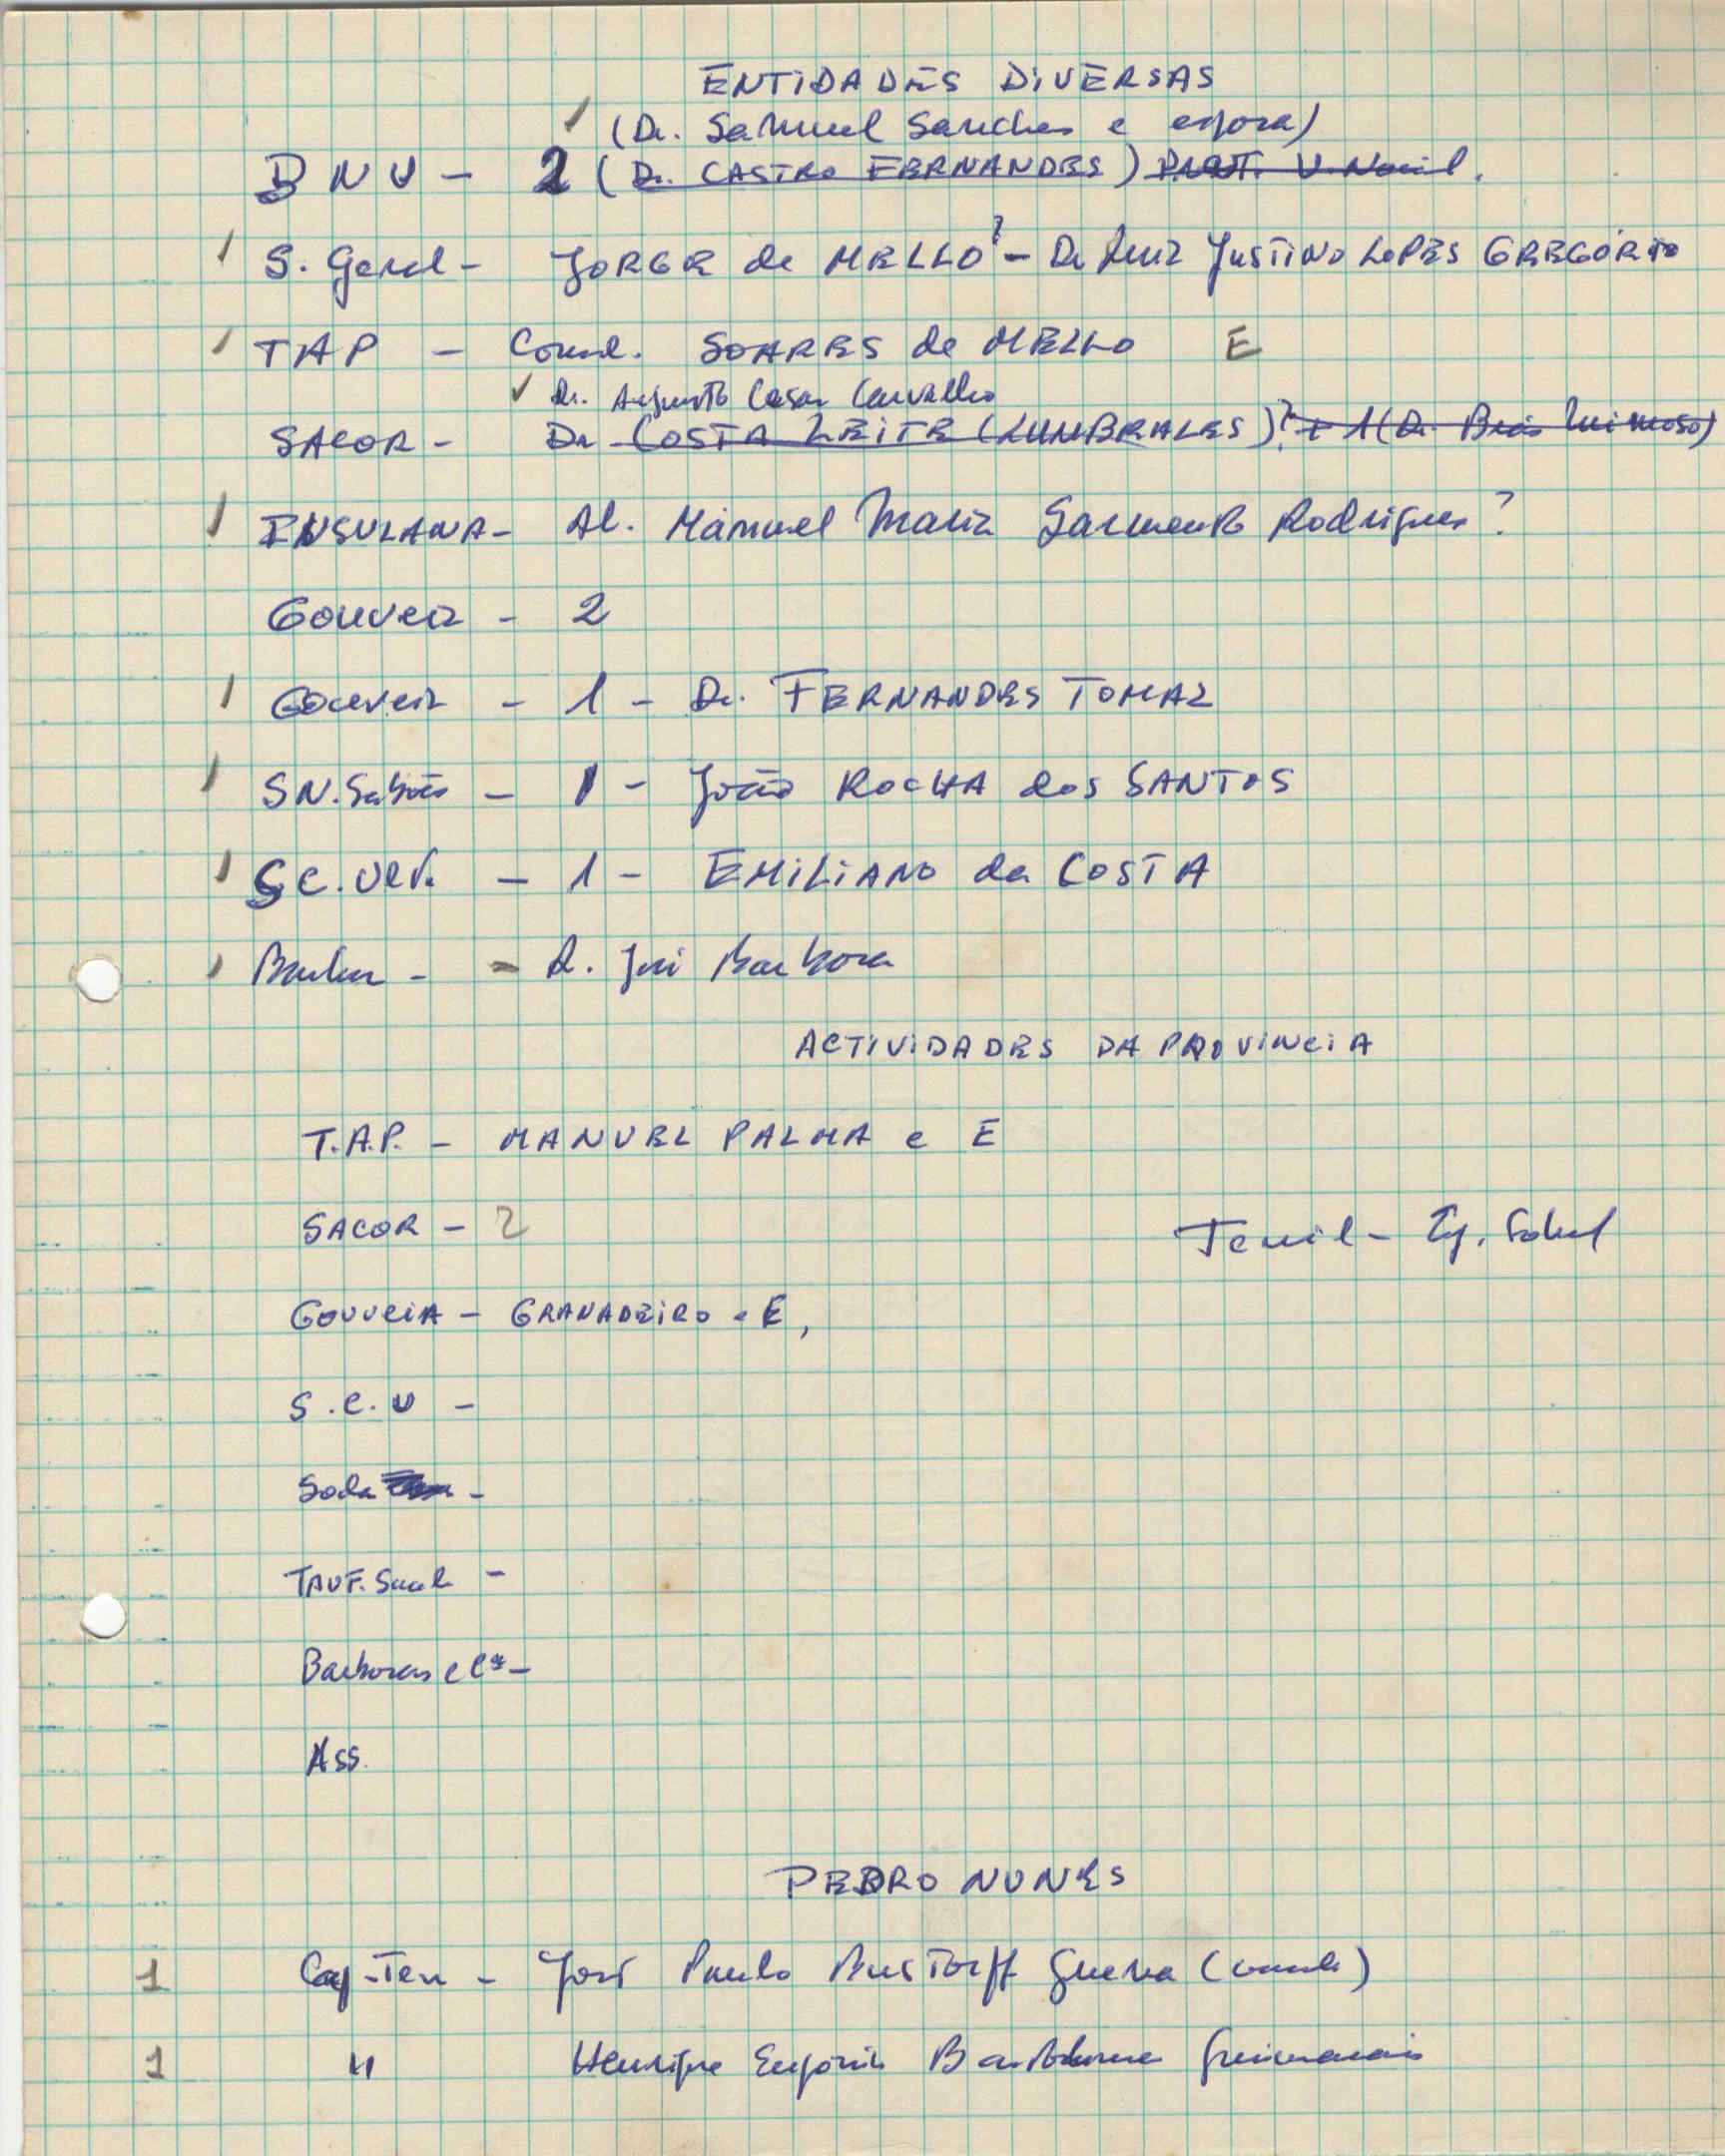 ENTIDADES DIVERSAS
(Dr. Samuel Sanches e esposa)
BNU - 2 (Dr. CASTRO FERNANDES)
S. Geral - JORGE de MELLO? - Dr Luiz JUSTINO LOPES GREGÓRIO
TAP - Comd. SOARES de MELLO E
Dr. Augusto Cesar Carvalho
SACOR - Dr COSTA LEITE (LUMBRALES)? + 1 (Dr. Brás Mimoso)
INSULANA - Al. Manuel Maria Sarmento Rodrigues?
Gouveia - 2
Gouveia - 1 - Dr. FERNANDES TOMAZ
SN. Sabões - 1 - João ROCHA dos SANTOS
SC. Ult. - 1 - EMILIANO da COSTA
- José Barbosa
ACTIVIDADES DA PROVINCIA
T.A.P. - MANUEL PALMA e E
SACOR - 2
Tecnil - Eg.
GOUVEIA - GRANADEIRO e E,
S.C.U -
Soda -
TAUF. Saad -
Barbosas e Cª -
Ass.
PEDRO NUNES
1 Cap-Ten - José Paulo Bustorff Guerra (comdt)
1 " Henrique Eugénio Bartolomeu Guimarães